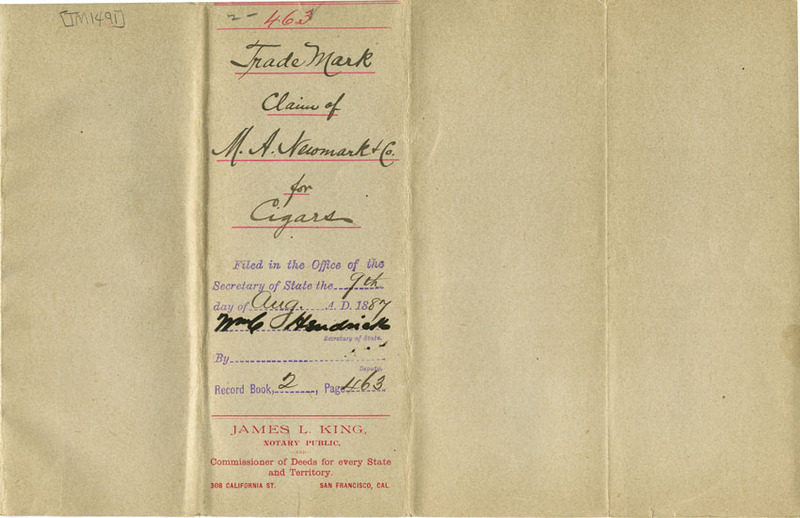 [TM1491]
2 - 463
Trade Mark
Claim of
M. A. Newmark & Co.
for
Cigars
Filed in the Office of the
Secretary of State the 9th
day of Aug. A. D. 1887
Wm C Hendrick
Secretary of State.
By
Deputy.
Record Book, 2, Page 463
JAMES L. KING,
NOTARY PUBLIC,
AND
Commissioner of Deeds for every State
and Territory.
308 CALIFORNIA ST. SAN FRANCISCO, CAL.